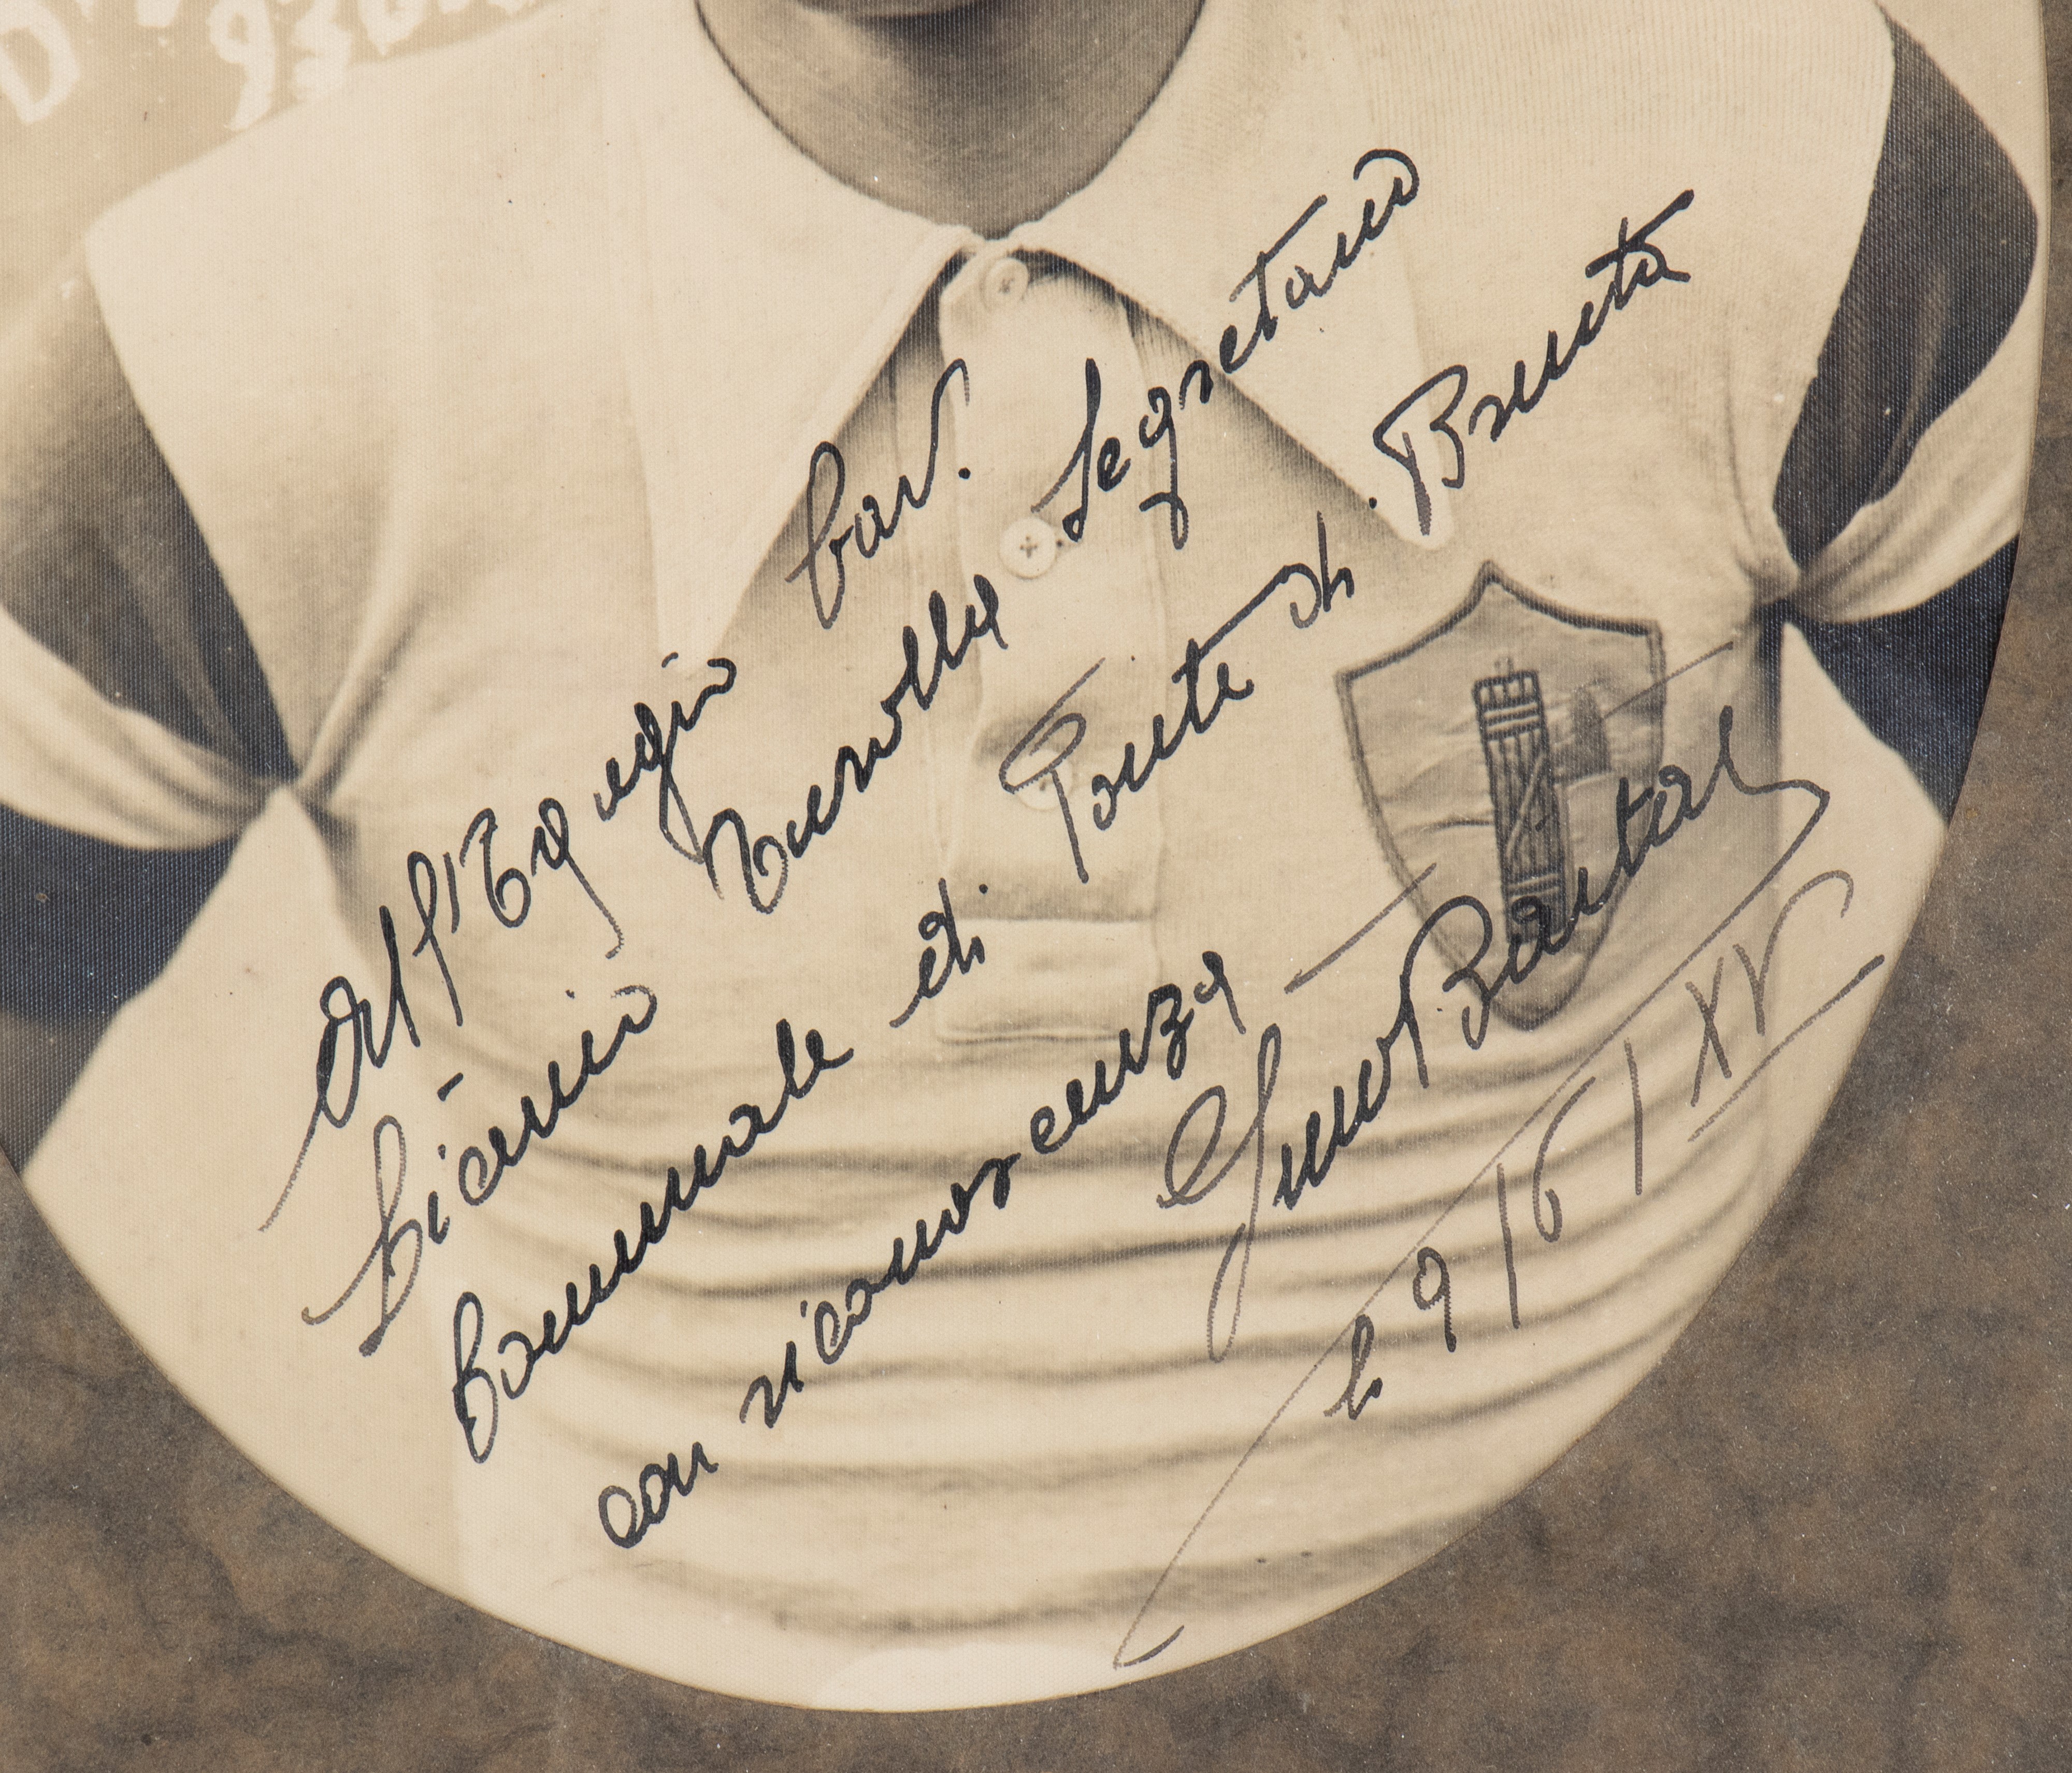 All'Egregio Cav.
Licinio Turolla Segretario
Comunale di Ponte di Brenta
con riconoscenza
Gino Bartali
li 9/6/XV